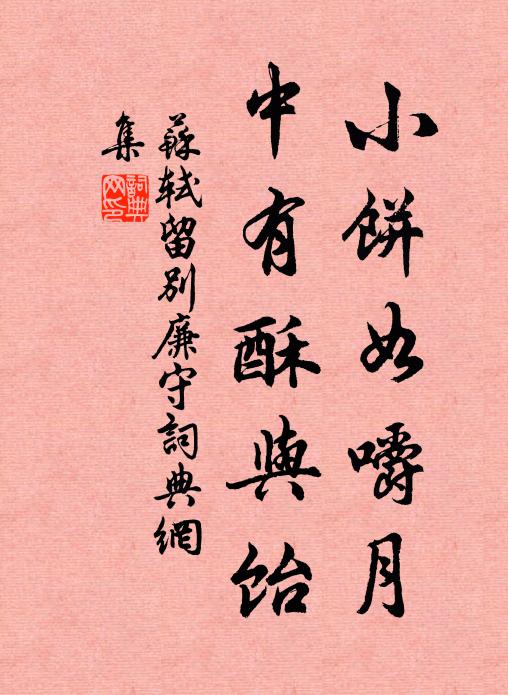 小餅如嚼月
中有酥與飴
蘇軾留別廉守詞典網
集
詞典
网印